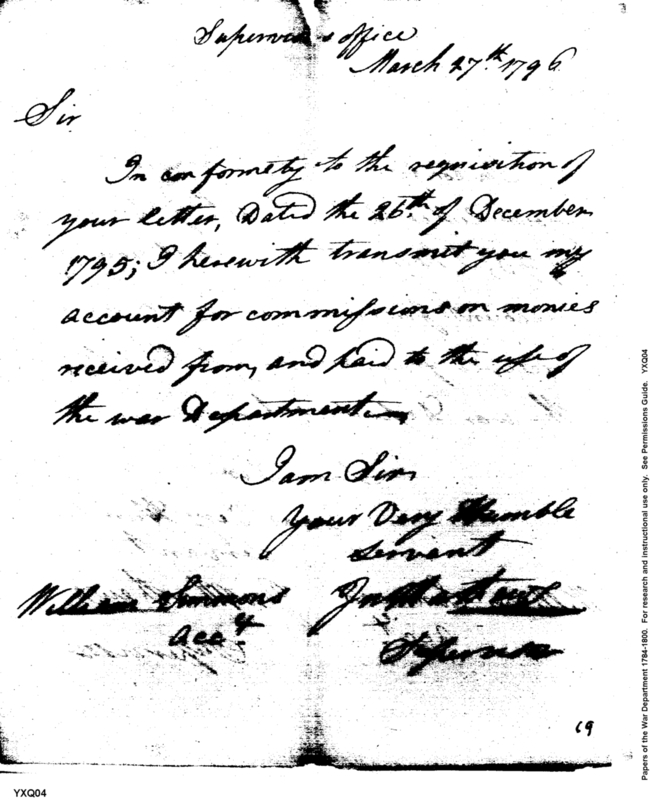 Supervisors office
March 27th. 1796
Sir
In conformety to the requisition of
your letter, Dated the 26th. of December
1795; I herewith transmet you my
account for commissions on monies
received from, and paid to the use of
the war Department
I am Sir,
your Very Humble
Servant
William Simmons
Acct.
Supervisor
69
YXQ04
Papers of the War Department 1784-1800. For research and instructional use only. See Permissions Guide. YXQ04